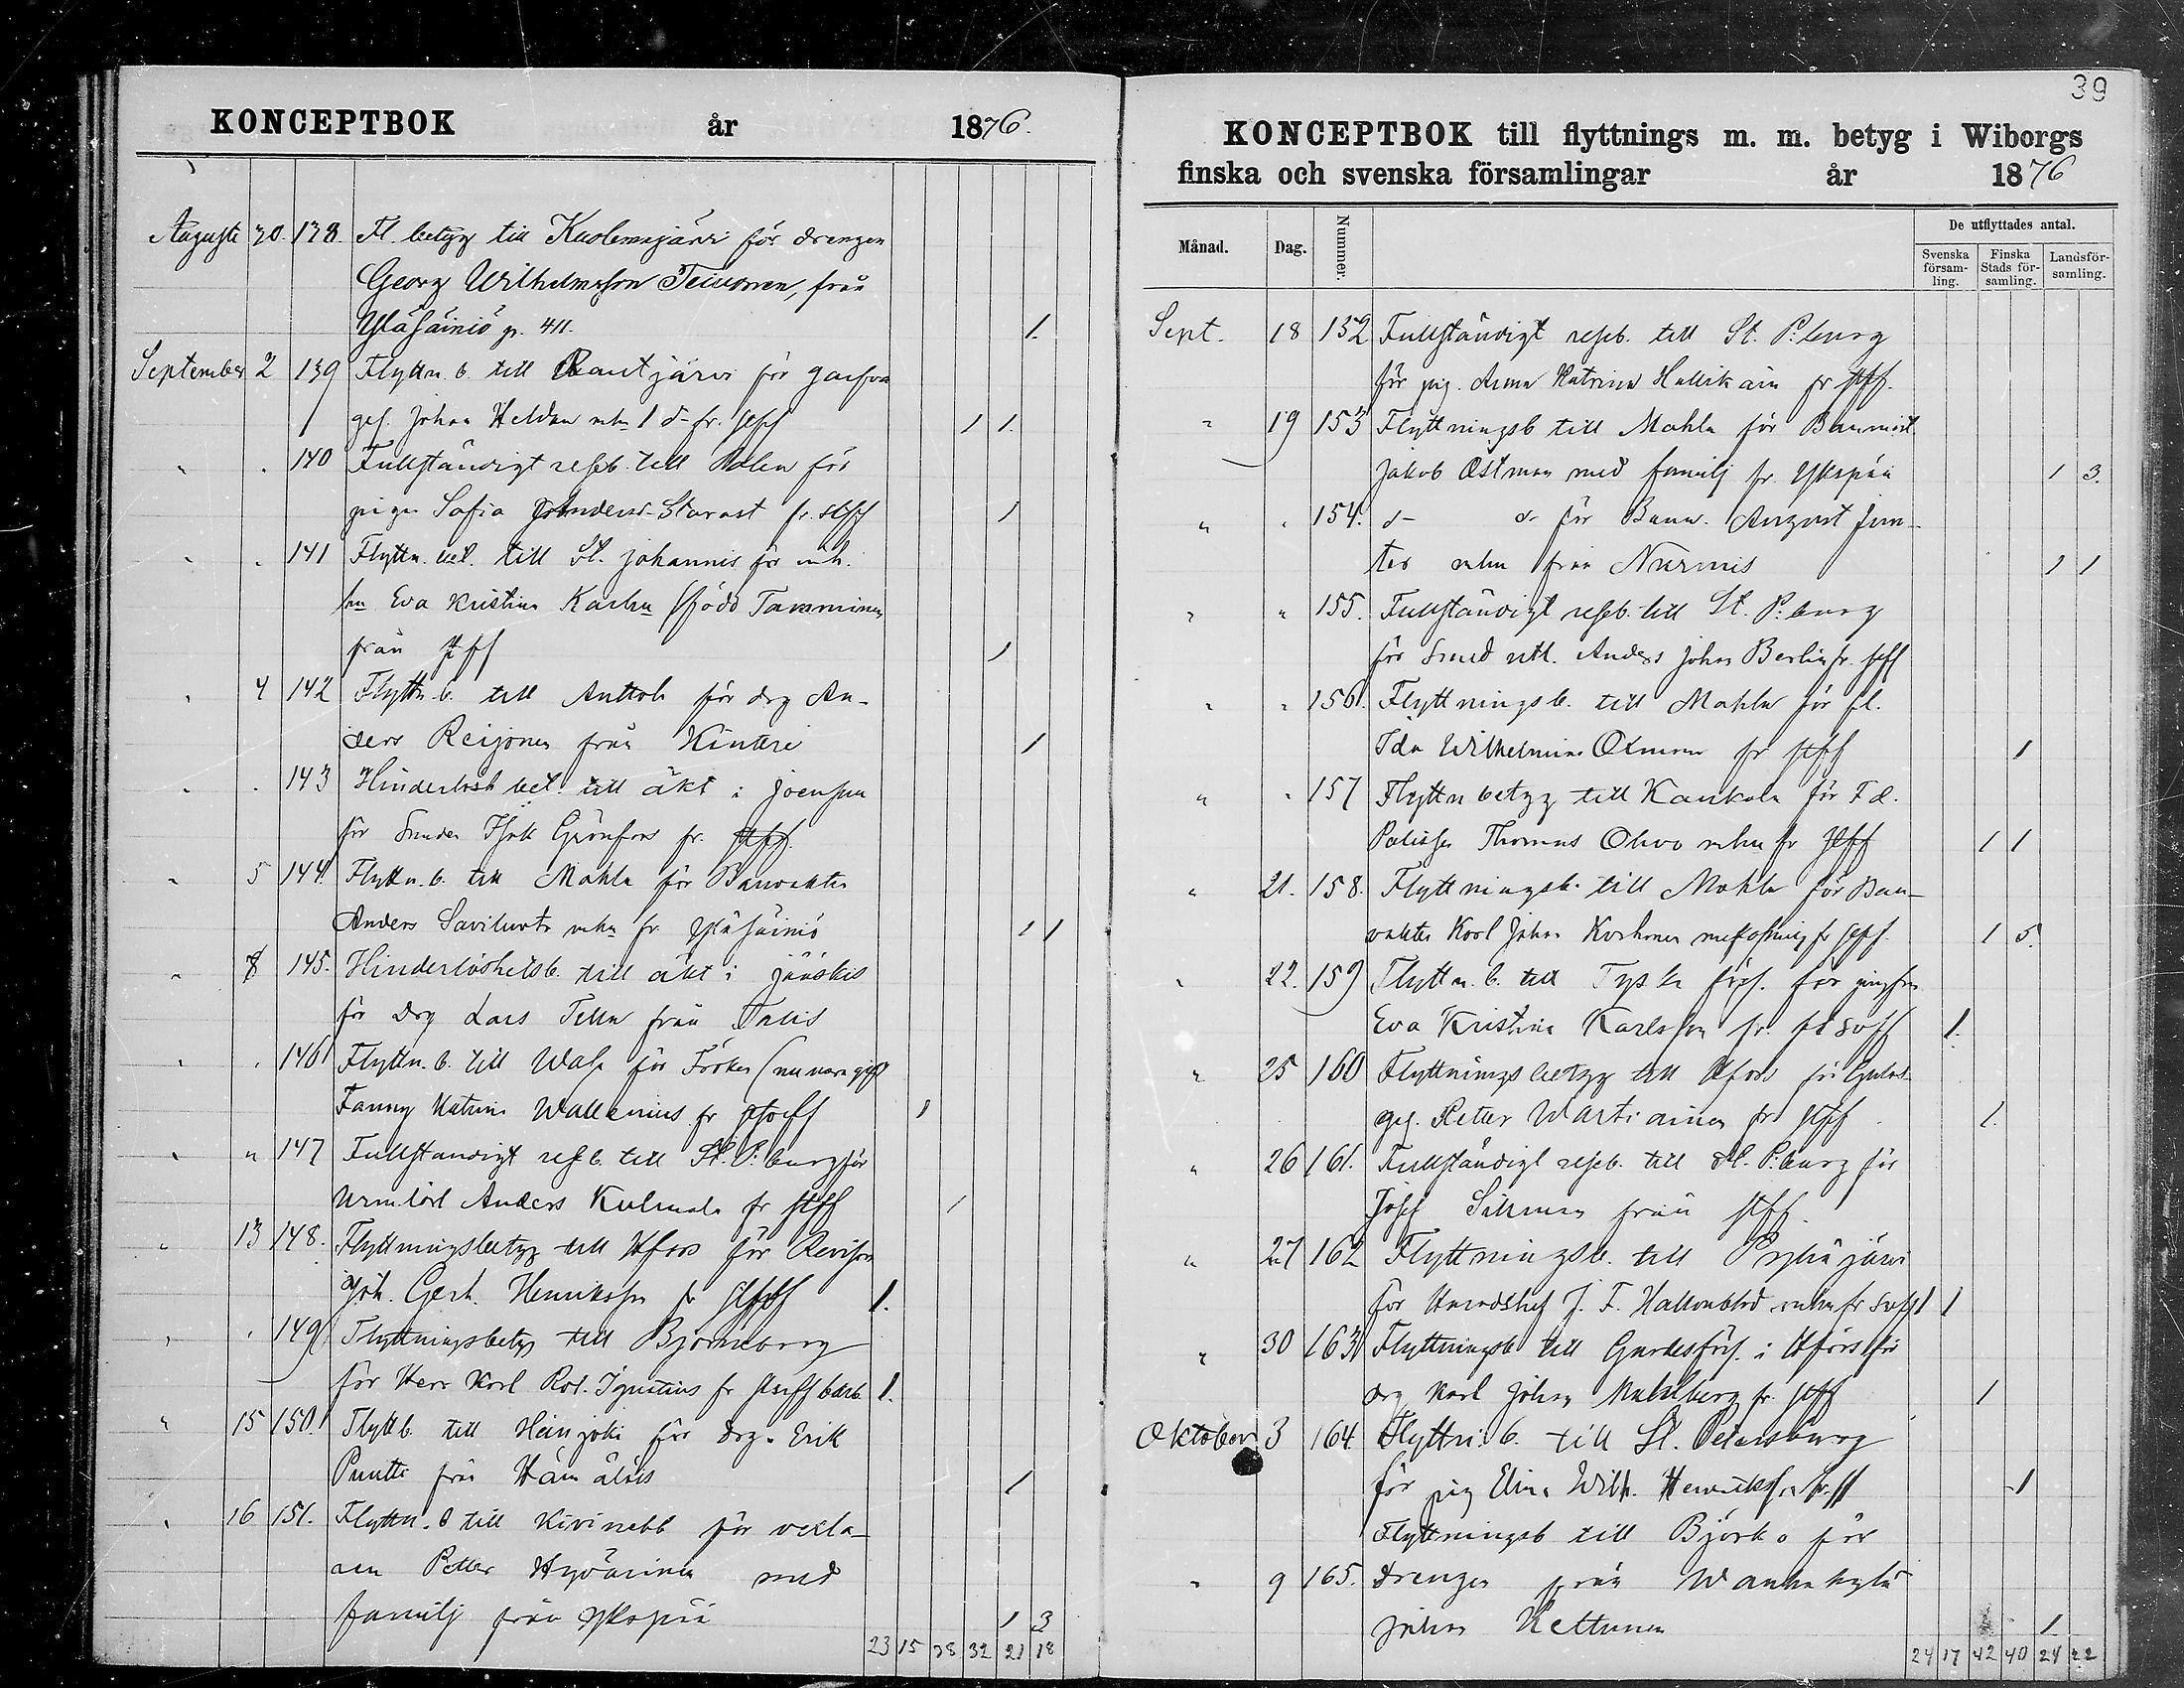 KONCEPTBOK år 1876.
Augusti 30. 138. Fl. betyg till Kuolemajärvi för drengen
Georg Wilhelmsson Teivonen, från
Yläsäiniö p. 411. 1.
September 2 139 Flyttn. b. till Rautjärvi för
Johan Heldan mh 1 d fr. stff 1 1.
" . 140 Fullständigt reseb. till för
pigan Sofia Andersd. Starast fr. stff 1
" . 141 Flyttn. bet. till St. Johannis för enk.
Eva Kristina Karhu (född Tamminen
från stff 1
" 4 142 Flyttn. b. till Anttola för drg An-
ders Reijonen från Kintere 1
" . 143 Hinderlösh. bet. till äkt i Joensuu
för Smeden Isak Grönfors fr. stff.
" 5 144 Flyttn. b. till Mohla för Banvakten
Anders mhu fr. Yläsäiniö 1 1
" 8 145. Hinderlöshetsb. till äkt i Jääskis
för drg Lars Tella från Talis
" . 146 Flyttn. b. till Wasa för Fröken (numera gift
Fanny Katrina Wallenius fr 1
" " 147 Fullständigt reseb. till St. P:burg för
Anders Kulmala fr stff 1
" 13 148. Flyttningsbetyg till Hfors för Revisor
Joh. Gerh. Henriksson fr 1.
" . 149 Flyttningsbetyg till Björneborg
för Herr Karl Rob. Ignatius fr 1.
" 15 150. Flyttb. till Heinjoki för drg. Erik
Puntti från Hämäläis 1
" 16 151. Flyttn. b till Kivinebb för
Petter Hyvärinen med
familj från Ykspää 1 3
23 15 38 32 21 18
39
KONCEPTBOK till flyttnings m. m. betyg i Wiborgs
finska och svenska församlingar år 1876
Månad. Dag. Nummer. De utflyttades antal.
Svenska församling. Finska Stads församling. Landsförsamling.
Sept. 18 152 Fullständigt reseb. till St. P:burg
för pig. Anna Katrina Hallikain fr stff.
" 19 153 Flyttningsb till Mohla för Banmäst.
Jakob Östman med familj fr. Ykspää 1 3.
" . 154. d- d- för Banv. August Jun-
tes mhu från Nurmis 1 1
" " 155. Fullständigt reseb. till St. P:burg
för Smed Anders Johan Berlin fr. stff
" " 156. Flyttningsb. till Mohla för fl.
Ida Wilhelmina Östman fr stff 1
" " 157 Flyttn betyg till Kaukola för F.d.
Polisen Thomas Ohvo mhu fr stff 1 1
" 21. 158. Flyttningsb. till Mohla för Ban-
vakten Karl Johan Korhonen fr stff 1 5.
" 22. 159 Flyttn. b. till Tyska förs. för jungfru
Eva Kristina Karlsson fr. 1.
" 25 160 Flyttningsbetyg till Hfors för
ges. Petter Wartiainen frå stff 1.
" 26 161. Fullständigt reseb. till St. P:burg för
Josef Silmen från stff.
" 27 162 Flyttningsb. till Pyhäjärvi
för Häradshöf J. F. Hallonblad mhu fr Svff 1 1
" 30 163 Flyttningsb till Gardesförs. i Hfors för
drg Karl Johan Muhlberg fr. stff 1
Oktober 3 164. Flyttn. b. till St. Petersburg
för pig Elina Wilh. Henriksson fr. ff 1
Flyttningsb till Björkö för
" 9 165. Drengen från Wanhakylä
Johan Kettunen 1
24 17 42 40 24 22